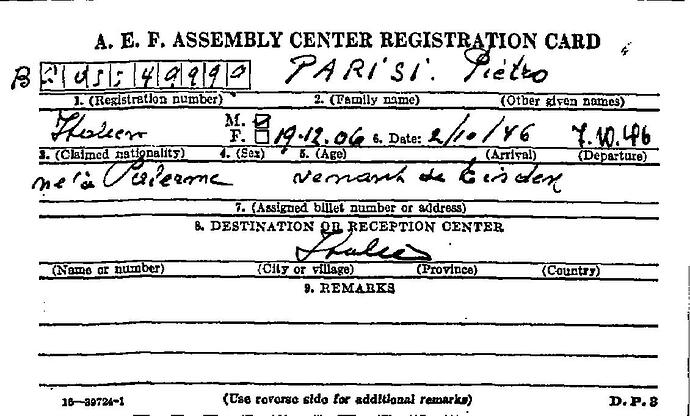 A. E. F. ASSEMBLY CENTER REGISTRATION CARD
B PARISI. Pietro
1. (Registration number) 2. (Family name) (Other given names)
Italien M. ☑ F. ☐ 19.12.06 6. Date: 2/10/46 7.10.46
3. (Claimed nationality) 4. (Sex) 5. (Age) (Arrival) (Departure)
né à Palerme venant de Eisden
7. (Assigned billet number or address)
8. DESTINATION OR RECEPTION CENTER
Italie
(Name or number) (City or village) (Province) (Country)
9. REMARKS
16—39724-1 (Use reverse side for additional remarks) D.P. 3